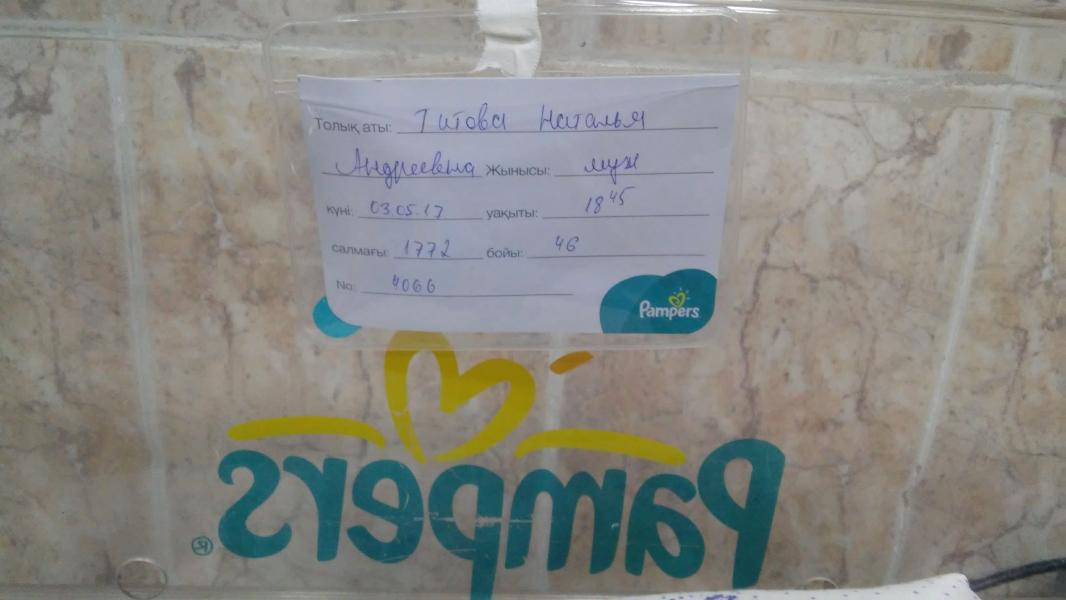 Толық аты: Титова Наталья
Андреевна Жынысы: муж
күні: 03.05.17 уақыты: 18 45
салмағы: 1772 бойы: 46
No: 4066
Pampers
Pampers ®